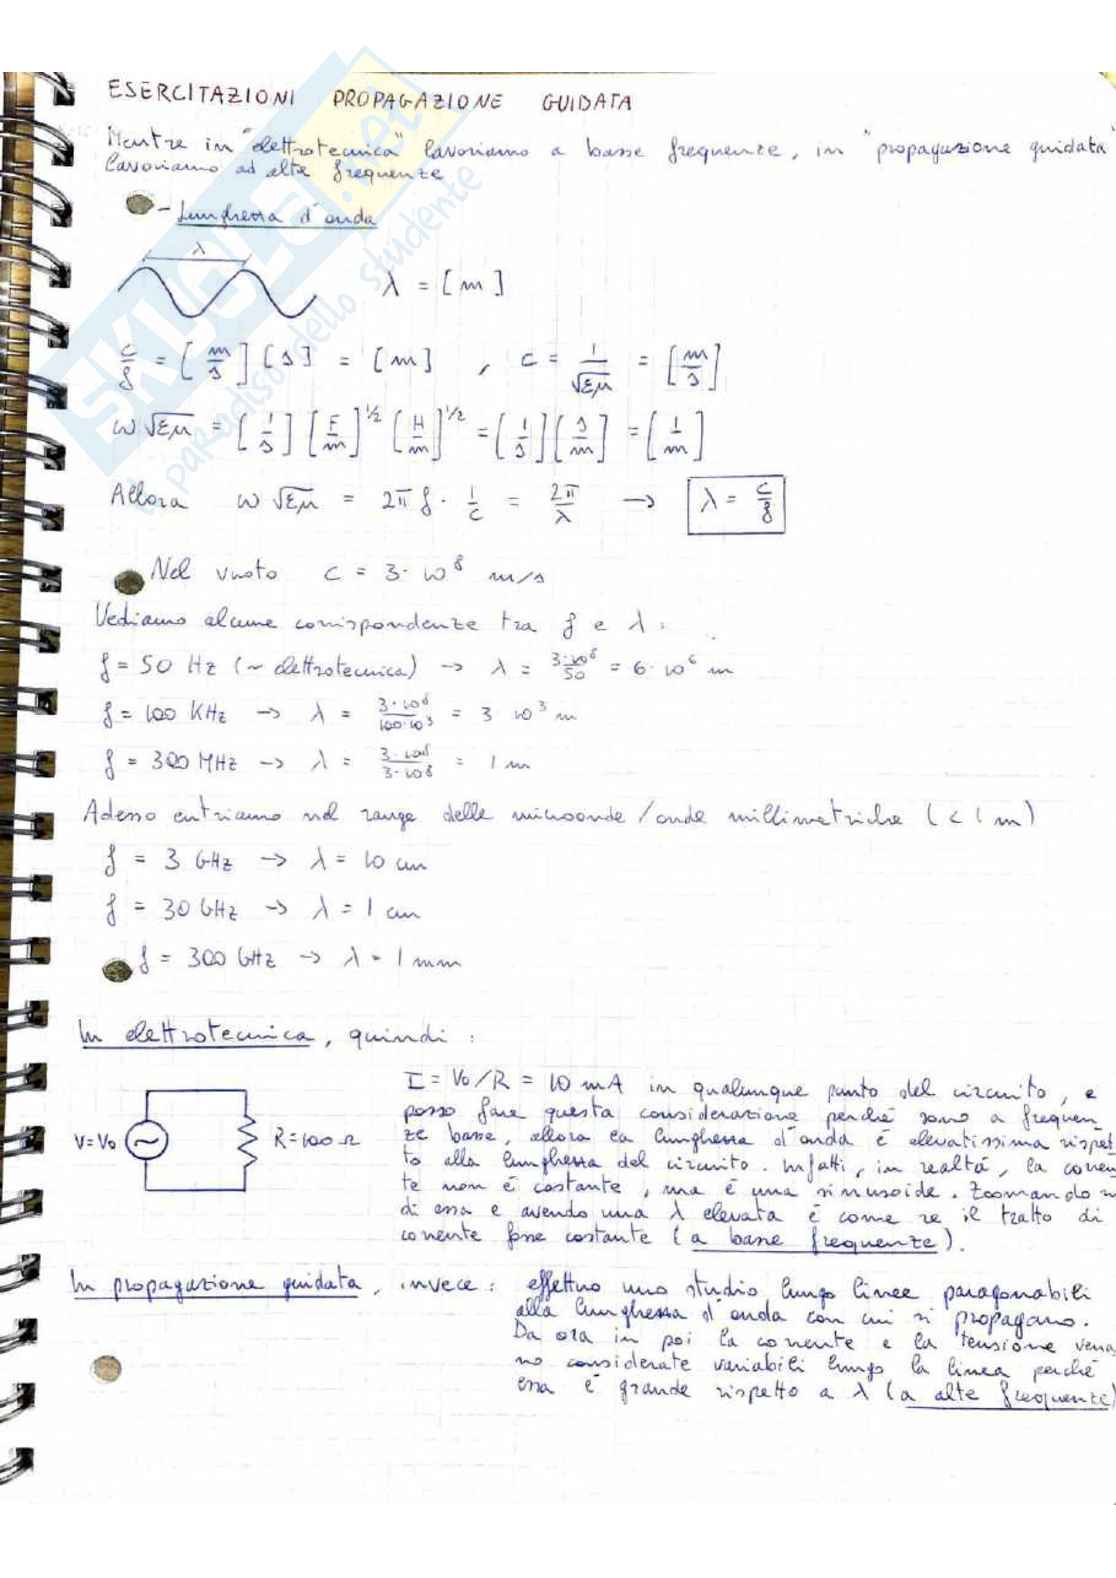 ESERCITAZIONI PROPAGAZIONE GUIDATA
Mentre in "elettrotecnica" lavoriamo a basse frequenze, in "propagazione guidata"
lavoriamo ad alte frequenze
- Lunghezza d'onda
λ
λ = [m]
c/f = [m/s] [s] = [m] , c = 1/√εμ = [m/s]
ω √εμ = [1/s] [F/m]^1/2 [H/m]^1/2 = [1/s] [s/m] = [1/m]
Allora ω √εμ = 2π f · 1/c = 2π/λ → λ = c/f
Nel vuoto c = 3·10^8 m/s
Vediamo alcune corrispondenze tra f e λ :
f = 50 Hz (~ elettrotecnica) → λ = 3·10^8/50 = 6·10^6 m
f = 100 KHz → λ = 3·10^8/100·10^3 = 3 10^3 m
f = 300 MHz → λ = 3·10^8/3·10^8 = 1 m
Adesso entriamo nel range delle microonde/onde millimetriche (< 1 m)
f = 3 GHz → λ = 10 cm
f = 30 GHz → λ = 1 cm
f = 300 GHz → λ = 1 mm
In elettrotecnica, quindi :
V=V0
R=100 Ω
I = V0/R = 10 mA in qualunque punto del circuito, e
posso fare questa considerazione perché sono a frequen
ze basse, allora la lunghezza d'onda é elevatissima rispet
to alla lunghezza del circuito. Infatti, in realtá, la corren
te non é costante, ma é una sinusoide. Zoomando
di essa e avendo una λ elevata é come se il tratto di
corrente fosse costante (a basse frequenze).
In propagazione guidata, invece : effettuo uno studio lungo linee paragonabili
alla lunghezza d'onda con cui si propagano.
Da ora in poi la corrente e la tensione verran
no considerate variabili lungo la linea perché
essa é grande rispetto a λ (a alte frequenze)
SKUOLA.net
il paradiso dello studente